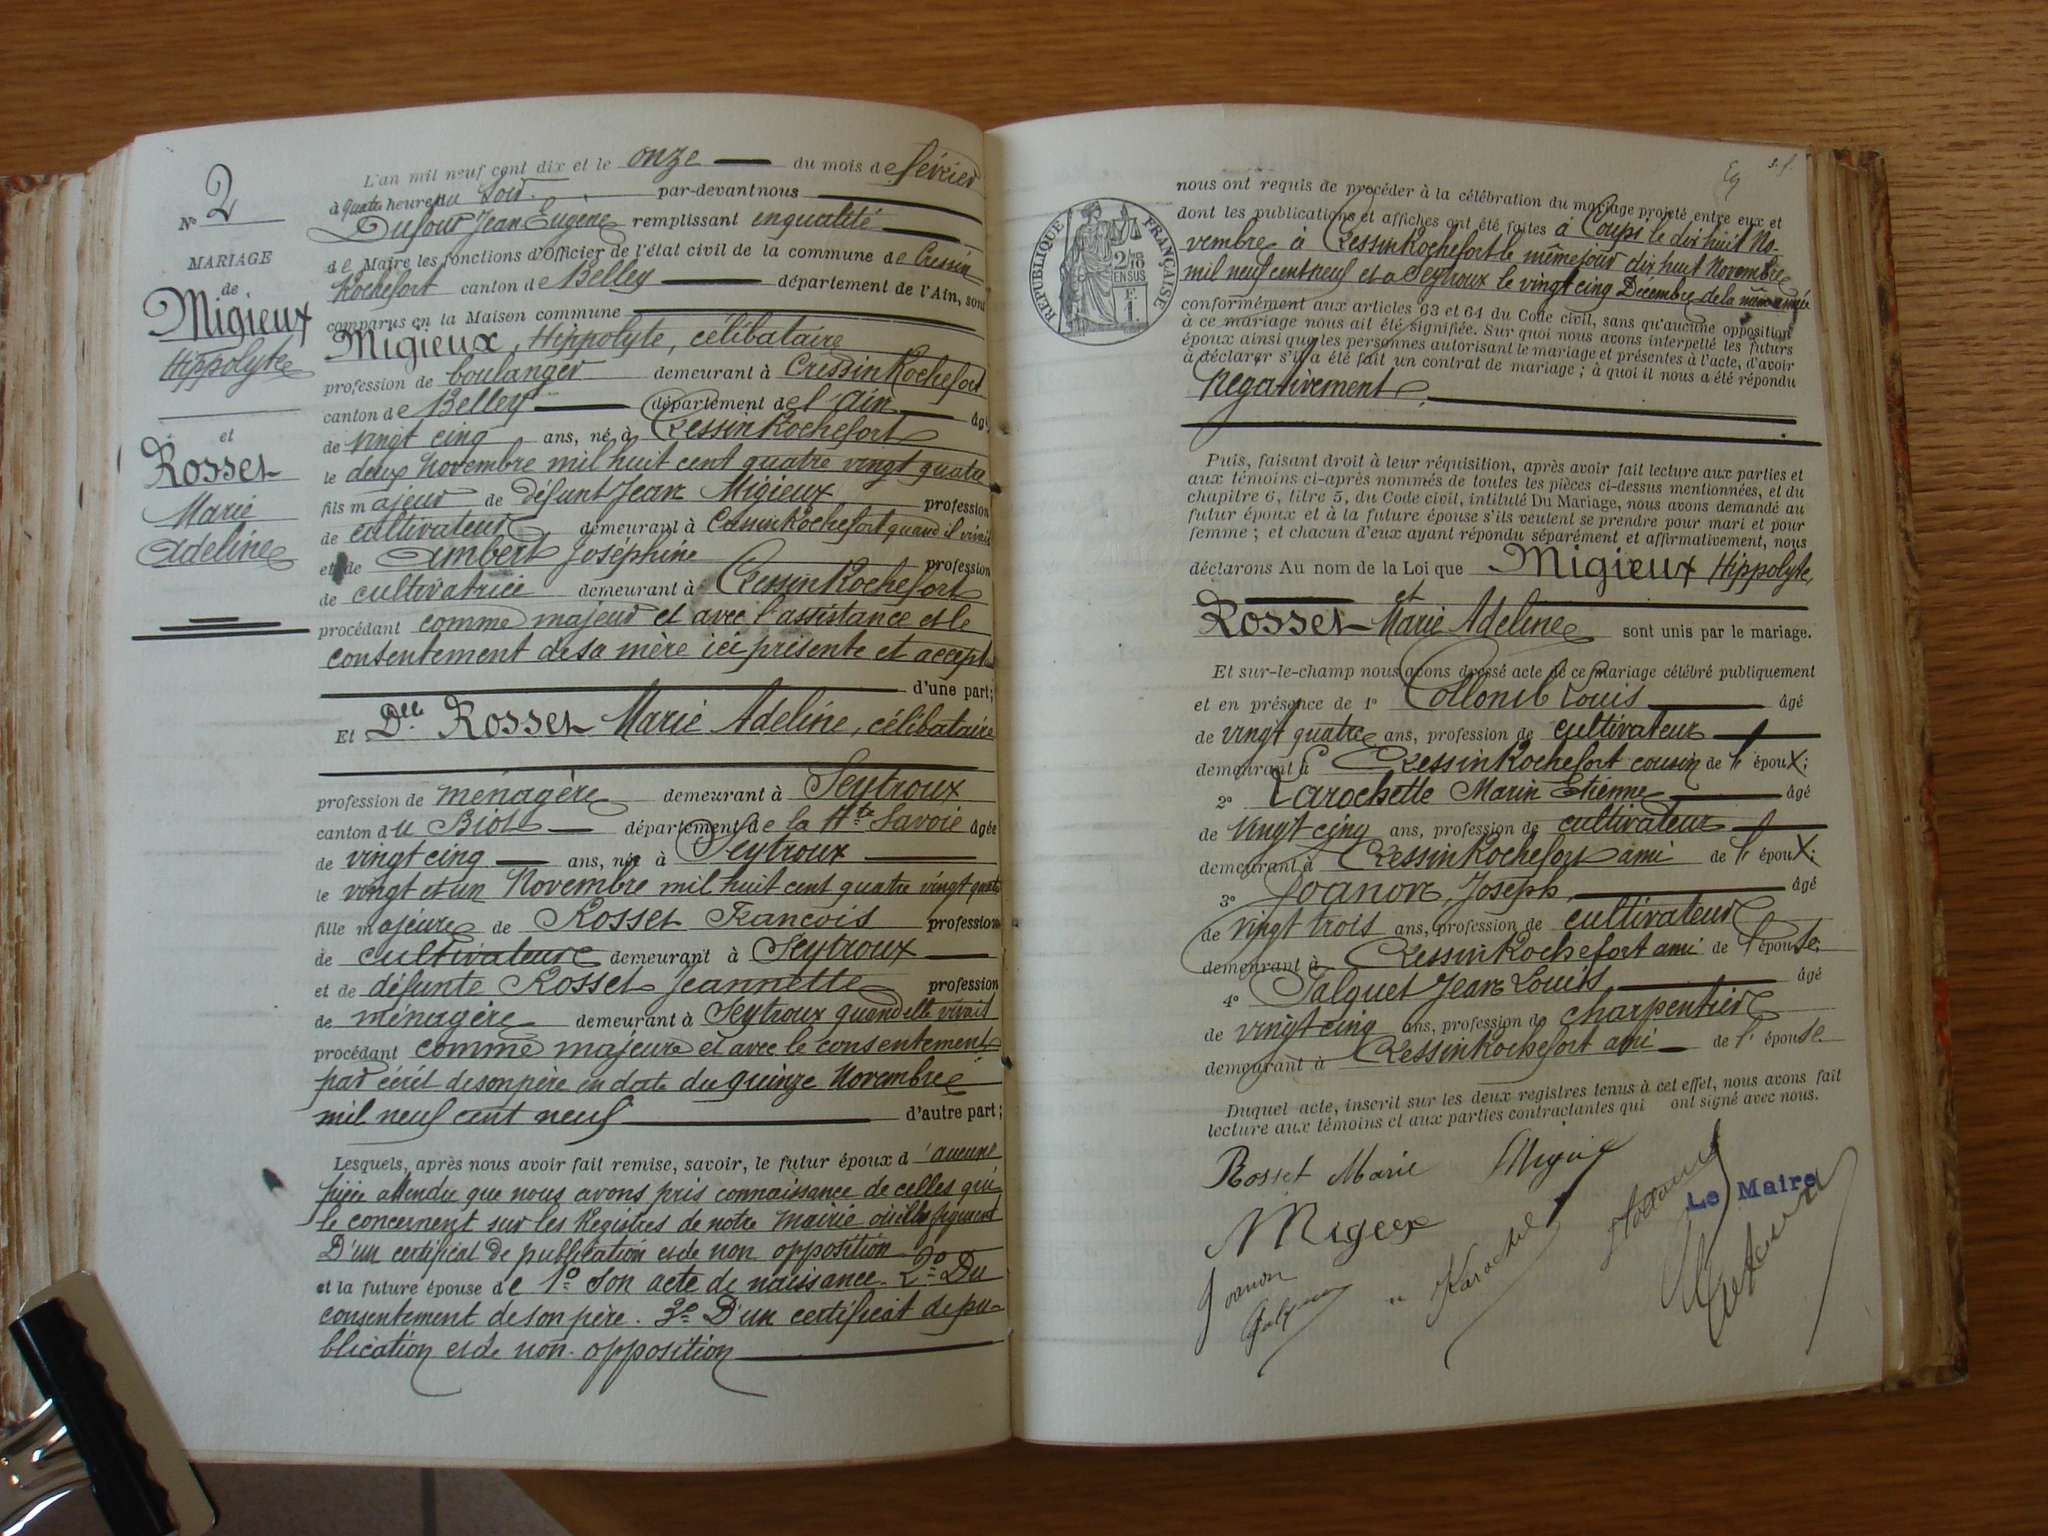 No 2
MARIAGE
de
Migieux
Hippolyte
et
Rosset
Marie
Adeline
L'an mil neuf cent dix et le onze du mois de février
à quatre heure du soir par-devant nous
Dufour Jean Eugène remplissant en qualité
de Maire les fonctions d'Officier de l'état civil de la commune de Cressin
Rochefort canton de Belley département de l'Ain, sont
comparus en la Maison commune
Migieux, Hippolyte, célibataire
profession de boulanger demeurant à Cressin Rochefort
canton de Belley département de l'ain âgé
de vingt cinq ans, né à Cressin Rochefort
le deux Novembre mil huit cent quatre vingt quatre
fils majeur de défunt Jean Migieux profession
de cultivateur demeurant à Cressin Rochefort quand il vivait
et de Ambert Joséphine profession
de cultivatrice demeurant à Cressin Rochefort
procédant comme majeur et avec l'assistance et le
consentement de sa mère ici présente et accept
d'une part;
Et Dlle Rosset Marie Adeline, célibataire
profession de ménagère demeurant à Seytroux
canton du Biot département de la Hte Savoie âgée
de vingt cinq ans, née à Seytroux
le vingt et un Novembre mil huit cent quatre vingt quatre
fille majeure de Rosset François profession
de cultivateur demeurant à Seytroux
et de défunte Rosset Jeannette profession
de ménagère demeurant à Seytroux quand elle vivait
procédant comme majeure et avec le consentement
par écrit de son père en date du quinze Novembre
mil neuf cent neuf d'autre part;
Lesquels, après nous avoir fait remise, savoir, le futur époux d'aucune
pièce attendu que nous avons pris connaissance de celles qui
le concernent sur les Registres de notre mairie où elles figurent
D'un certificat de publication et de non opposition
et la future épouse de 1º Son acte de naissance. 2º Du
consentement de son père. 3º D'un certificat de pu-
blication et de non-opposition
RÉPUBLIQUE FRANÇAISE
2/10
EN SUS
nous ont requis de procéder à la célébration du mariage projeté entre eux et
dont les publications et affiches ont été faites à le dix huit No-
vembre à Cressin Rochefort le même jour dix huit Novembre
mil neuf cent neuf et à Seytroux le vingt cinq Décembre de la même année
conformément aux articles 63 et 64 du Code civil, sans qu'aucune opposition
à ce mariage nous ait été signifiée. Sur quoi nous avons interpellé les futurs
époux ainsi que les personnes autorisant le mariage et présentes à l'acte, d'avoir
à déclarer s'il a été fait un contrat de mariage; à quoi il nous a été répondu
Négativement.
Puis, faisant droit à leur réquisition, après avoir fait lecture aux parties et
aux témoins ci-après nommés de toutes les pièces ci-dessus mentionnées, et du
chapitre 6, titre 5, du Code civil, intitulé Du Mariage, nous avons demandé au
futur époux et à la future épouse s'ils veulent se prendre pour mari et pour
femme; et chacun d'eux ayant répondu séparément et affirmativement, nous
déclarons Au nom de la Loi que Migieux Hippolyte,
et
Rosset Marie Adeline sont unis par le mariage.
Et sur-le-champ nous avons dressé acte de ce mariage célébré publiquement
et en présence de 1º Collomb Louis âgé
de vingt quatre ans, profession de cultivateur
demeurant à Cressin Rochefort cousin de l'époux;
2º Larochette Marin Etienne âgé
de vingt cinq ans, profession de cultivateur
demeurant à Cressin Rochefort ami de l'époux;
3º Joanon, Joseph, âgé
de vingt trois ans, profession de cultivateur
demeurant à Cressin Rochefort ami de l'épouse;
4º Jean Louis, âgé
de vingt cinq ans, profession de charpentier
demeurant à Cressin Rochefort ami de l'épouse
Duquel acte, inscrit sur les deux registres tenus à cet effet, nous avons fait
lecture aux témoins et aux parties contractantes qui ont signé avec nous.
Rosset Marie
Le Maire
Joanon